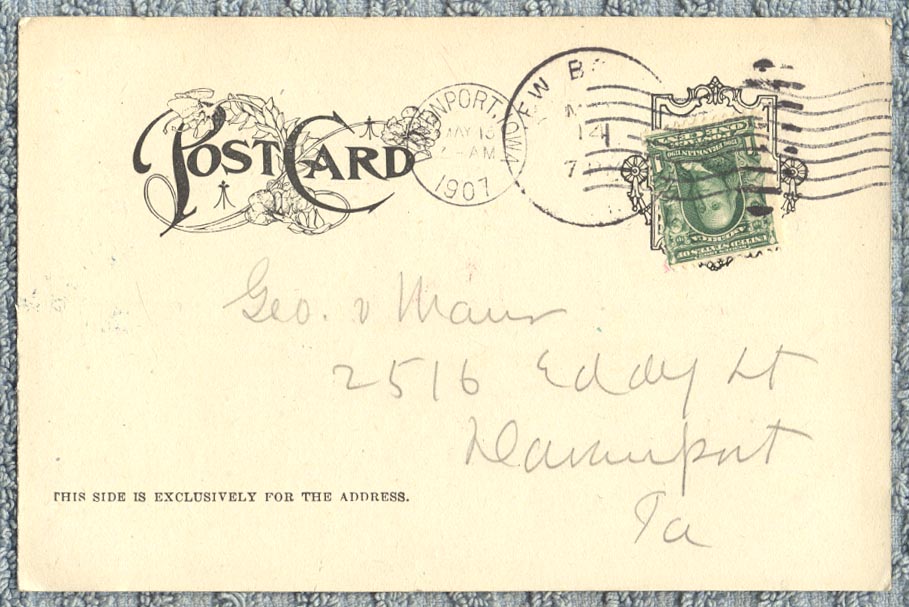 POST CARD
DAVENPORT, IOWA
MAY 13
AM
1907
NEW B
14
7
ONE CENT
UNITED STATES OF
Geo. v Maur
2516 Eddy St
Davenport
Ia
THIS SIDE IS EXCLUSIVELY FOR THE ADDRESS.